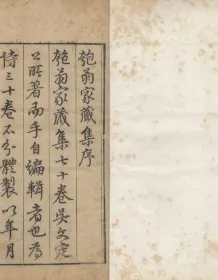 匏翁家藏集序
匏翁家藏集七十卷吳文定
公所著而手自編輯者也為
詩三十卷不分體製以年月